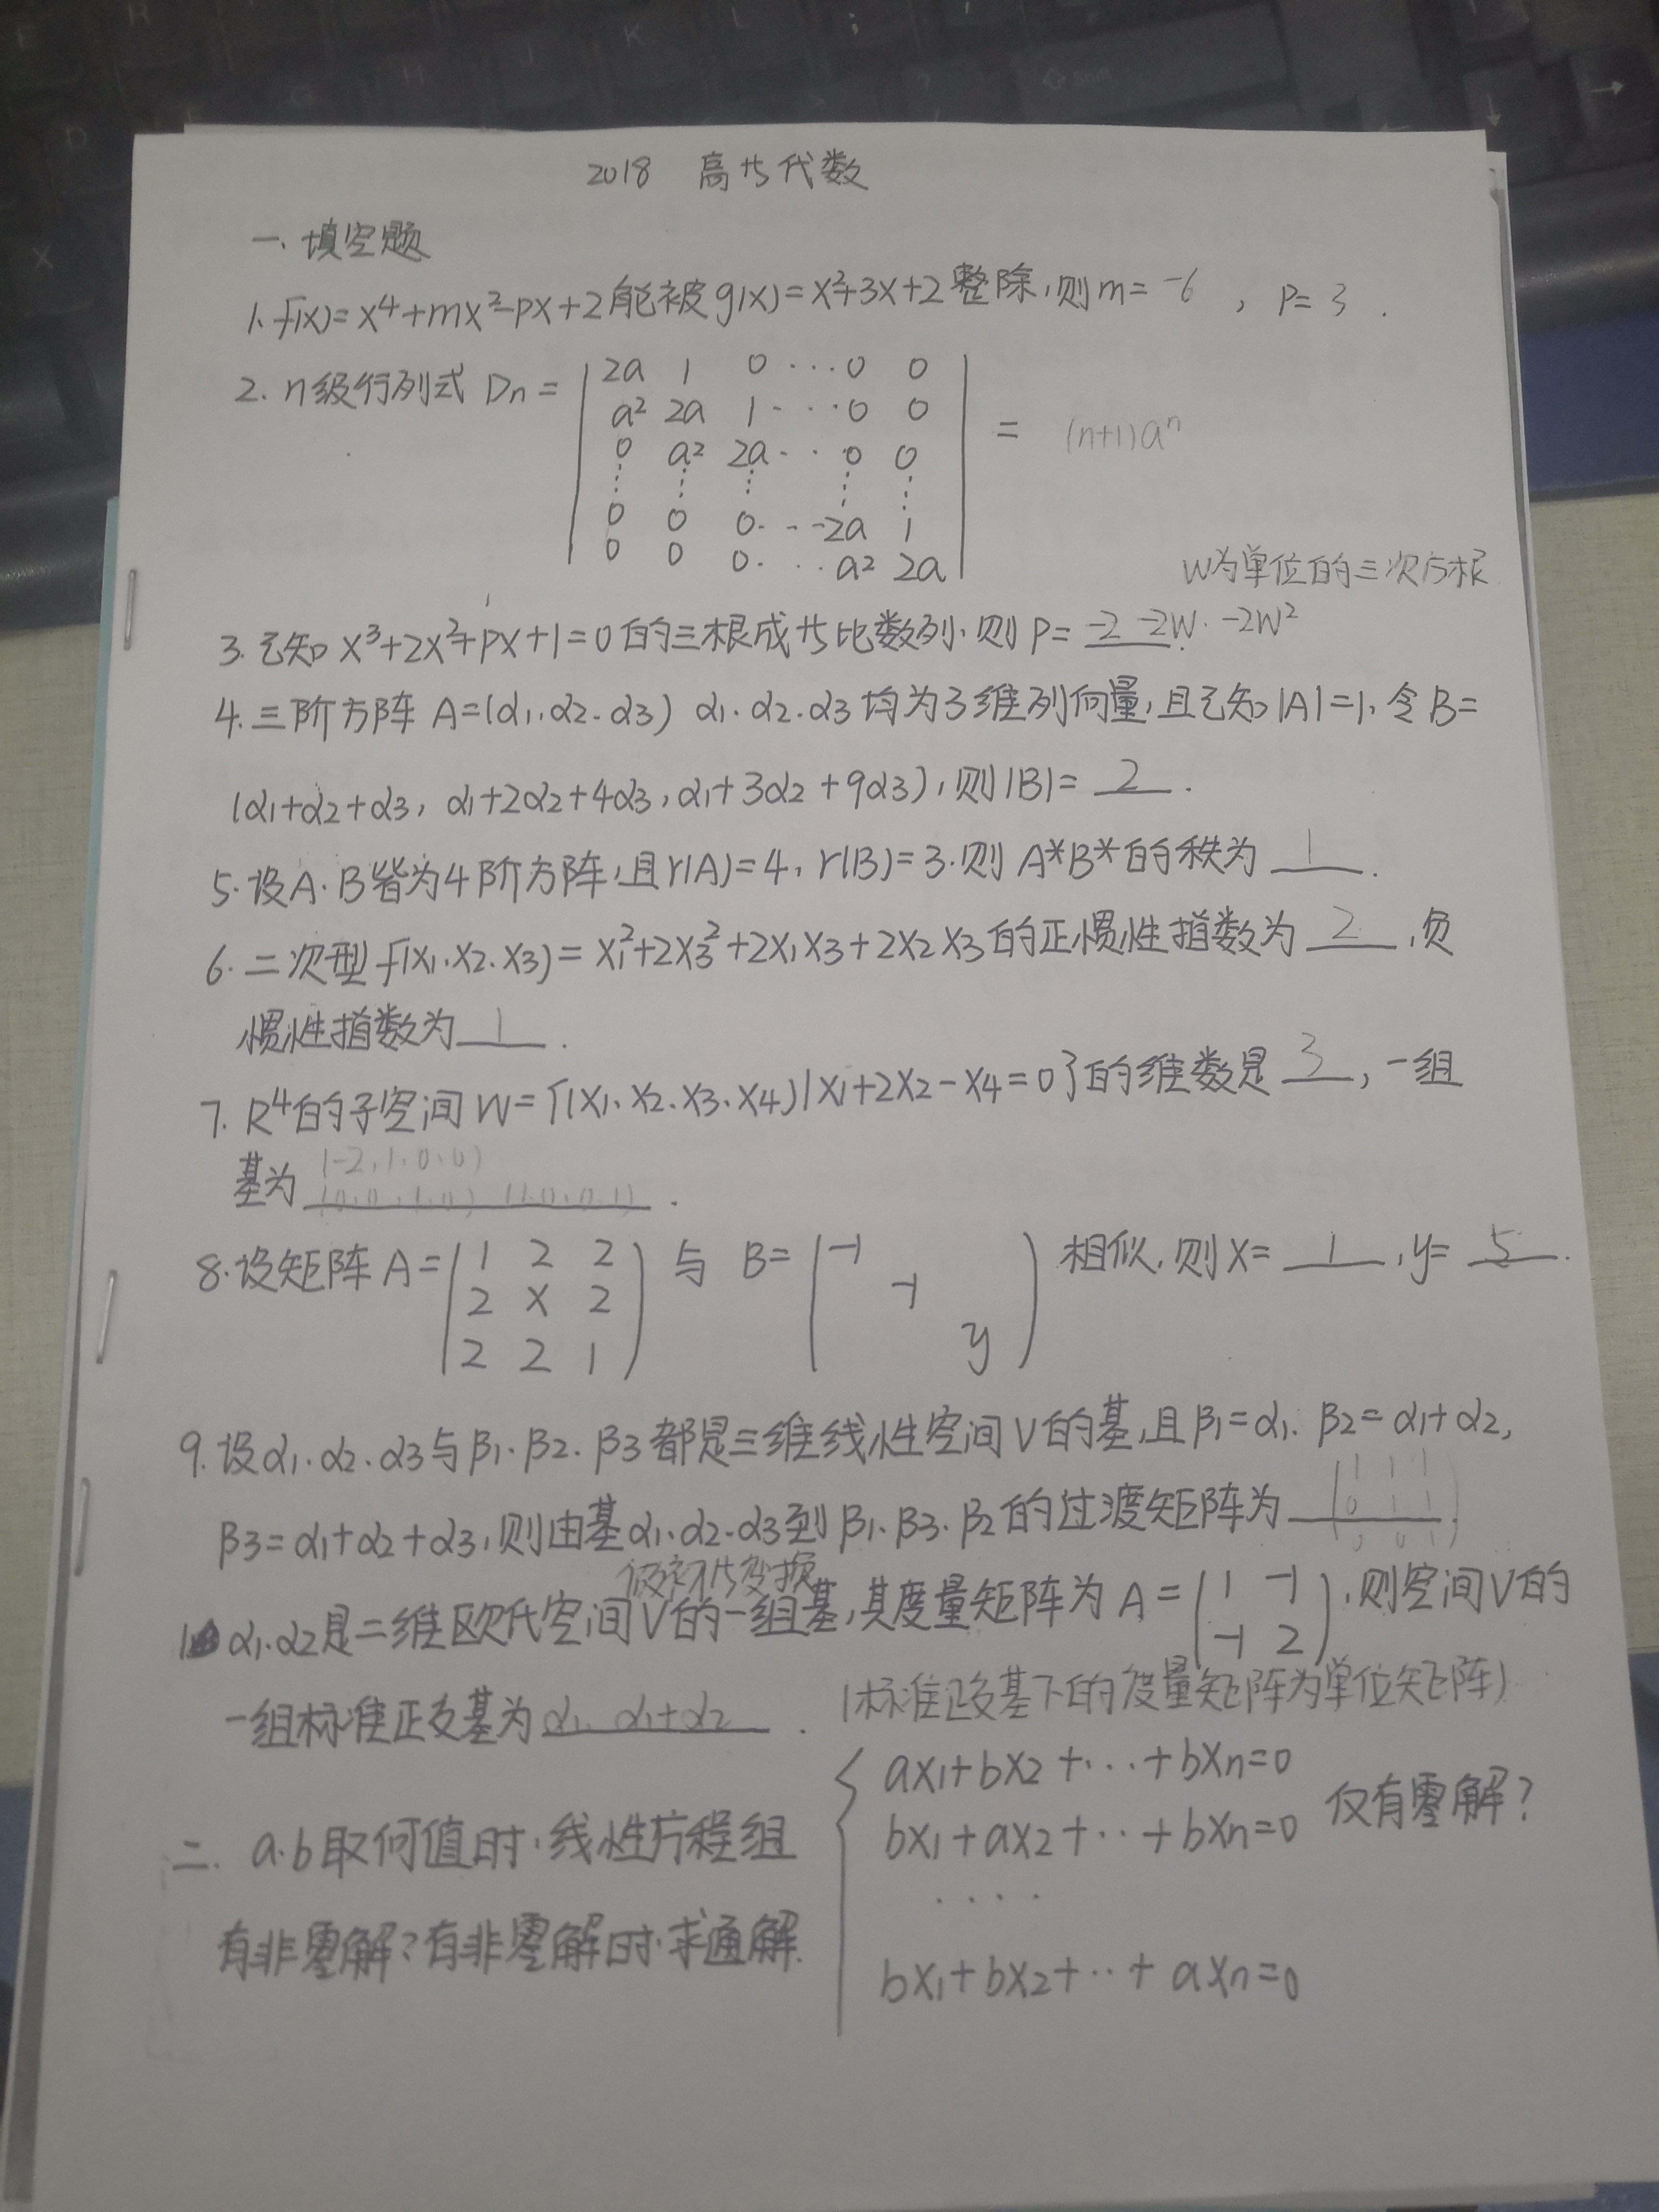 2018 高等代数
一、填空题
1. f(x)=x⁴+mx²-px+2能被g(x)=x²+3x+2整除,则m= -6 , P= 3 .
2. n级行列式 Dn = | 2a 1 0 ··· 0 0
a² 2a 1 ··· 0 0
0 a² 2a ··· 0 0 | = (n+1)aⁿ
⋮ ⋮ ⋮ ⋮ ⋮
0 0 0 ··· 2a 1
0 0 0 ··· a² 2a
W为单位的三次方根
3. 已知 x³+2x²+px+1=0的三根成等比数列.则 P= -2 -2W. -2W²
4. 三阶方阵 A=(α1.α2.α3) α1.α2.α3均为3维列向量,且已知|A|=1,令B=
(α1+α2+α3, α1+2α2+4α3, α1+3α2+9α3),则|B|= 2 .
5. 设A.B皆为4阶方阵,且r(A)=4, r(B)=3.则 A*B*的秩为 1 .
6. 二次型 f(x1.x2.x3)= x1²+2x3²+2x1x3+2x2x3的正惯性指数为 2 ,负
惯性指数为 1 .
7. R⁴的子空间 W={(x1.x2.x3.x4)|x1+2x2-x4=0}的维数是 3 ,一组
(-2,1.0.0)
基为 (0.0.1.0) (1.0.0.1) .
8. 设矩阵 A= ( 1 2 2 ) 与 B= ( -1 ) 相似,则X= 1 , y= 5 .
2 x 2 -1
2 2 1 y
9. 设α1.α2.α3与β1.β2.β3都是三维线性空间V的基,且β1=α1. β2=α1+α2,
1 1 1
β3=α1+α2+α3,则由基α1.α2.α3到β1.β3.β2的过渡矩阵为 0 1 1 .
0 0 1
做初等变换
10 α1.α2是二维欧氏空间V的一组基,其度量矩阵为 A= ( 1 -1 ) ,则空间V的
-1 2
一组标准正交基为 α1. α1+α2 . (标准正交基下的度量矩阵为单位矩阵)
二. a.b取何值时,线性方程组 { ax1+bx2+···+bxn=0
bx1+ax2+···+bxn=0 仅有零解?
····
bx1+bx2+···+axn=0
有非零解?有非零解时,求通解.